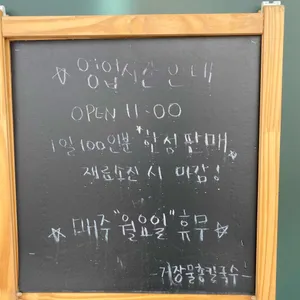 ☆ 영업시간 안내
OPEN 11:00
1일 100인분 *한정판매*
재료소진 시 마감!
☆ 매주 "월요일" 휴무 ☆
- 거창물총칼국수 -